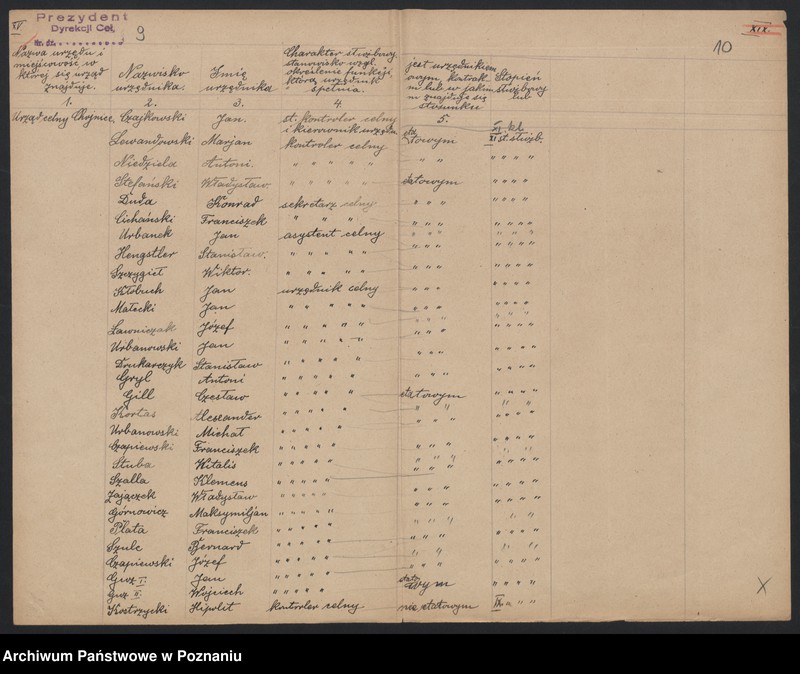 XV
Prezydent
Dyrekcji Ceł,
9
XIX.
10
Nazwa urzędu i
miejscowość w
której się urząd
znajduje.
Nazwisko
urzędnika.
Imię
urzędnika
Charakter służbowy
stanowisko wzgl.
określenie funkcji,
którą urzędnik
spełnia.
jest urzędnikiem
owym, kontrak.
lub w jakim
znajduje się
stosunku
Stopień
służbowy
1. 2. 3. 4. 5.
Urząd celny Chojnice Czajkowski Jan. st. kontroler celny
i kierownik urzędu
Lewandowski Marjan kontroler celny etatowym XI st. służb.
Niedziela Antoni. " " " " " " " " " "
Stefański Władysław. " " " " " etatowym " " " "
Duda Konrad sekretarz celny " " " " " " "
Cichański Franciszek " " " " " " " " " "
Urbanek Jan asystent celny " " " " " " "
Hengstler Stanisław. " " " " " " " " " " " "
Szczygieł Wiktor. " " " " " " " " " " " "
Kłobuch Jan urzędnik celny " " " " " " "
Małecki Jan " " " " " " " " " " " "
Ławniczak Józef " " " " " " " " " " " "
Urbanowski Jan " " " " " " " " " " " "
Drukarczyk Stanisław " " " " " " " " " " "
Gryl Antoni " " " " " " " " "
Gill Czesław " " " " " etatowym " " " "
Kortas Alexander " " " " " " " " "
Urbanowski Michał " " " " " " " " " " " "
Czapiewski Franciszek " " " " " " " " " " " "
Stuba Witalis " " " " " " " " " " "
Szalla Klemens " " " " " " " " " " " "
Zajączek Władysław " " " " " " " " " " " "
Górnowicz Maksymiljan " " " " " " " " " " " "
Plata Franciszek " " " " " " " " " "
Szulc Bernard " " " " " " " " " " " "
Czapiewski Józef " " " " " " " " "
Guz I. Jan " " " " " etatowym " " " "
Guz II. Wojciech " " " " "
Kostrzycki Hipolit kontroler celny nie etatowym IX. " " "
X
Archiwum Państwowe w Poznaniu